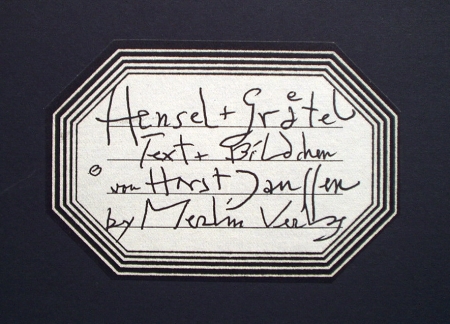 Hensel + Gretel
Text + Bildchen
von Horst Janssen
by Merlin Verlag